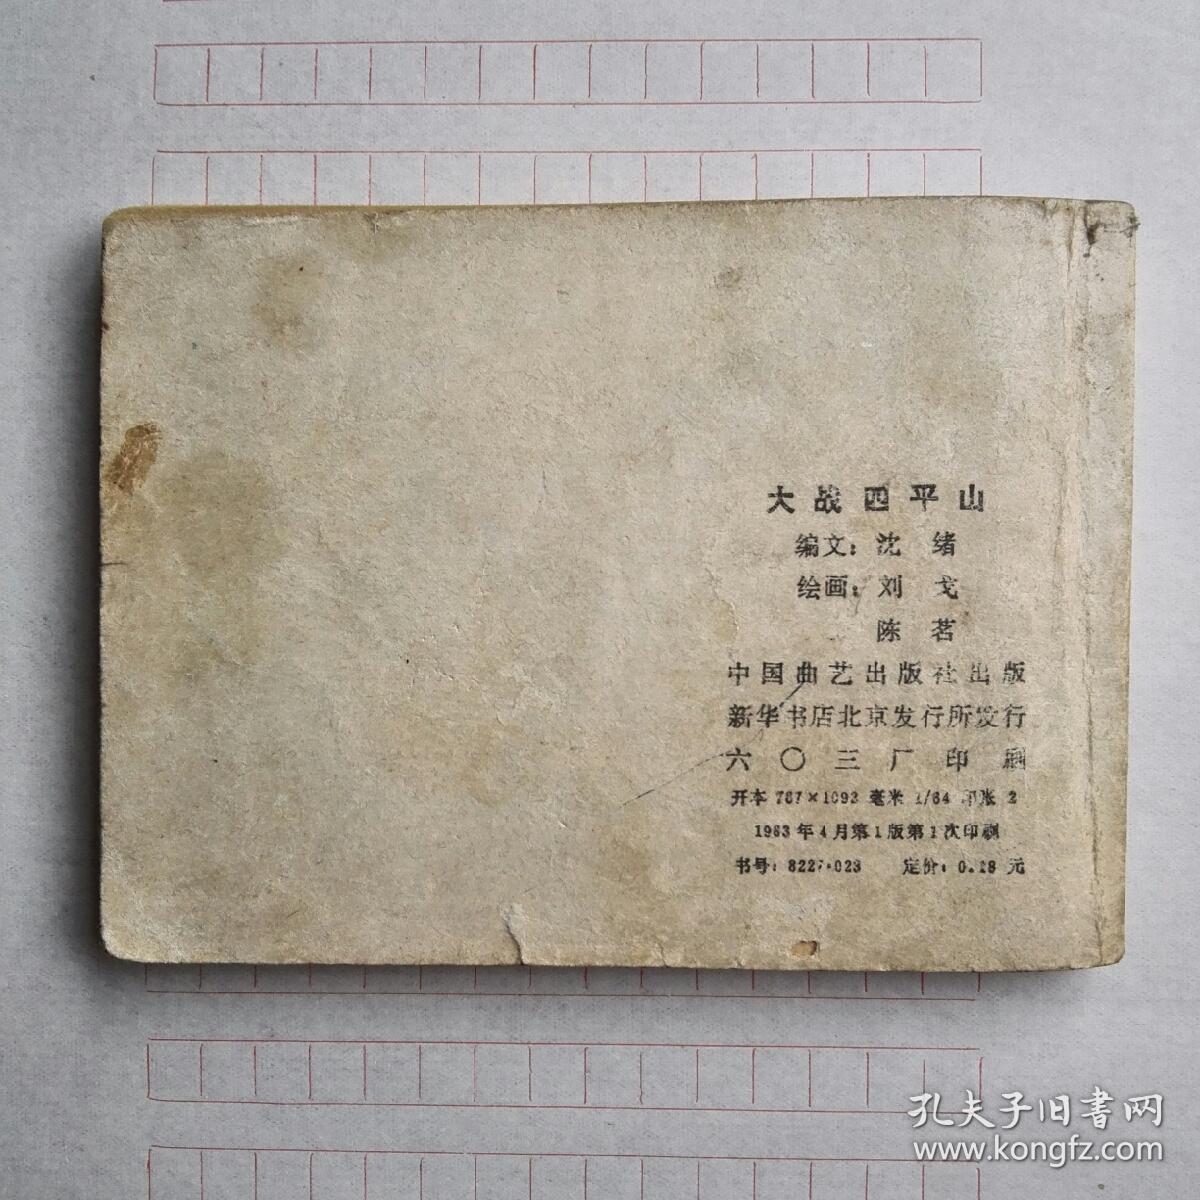 大战四平山
编文：沈绪
绘画：刘戈
陈茗
中国曲艺出版社出版
新华书店北京发行所发行
六〇三厂印刷
开本 787×1092 毫米 1/64 印张 2
1983年4月第1版第1次印刷
书号：8227·023 定价：0.18 元
孔夫子旧书网
www.kongfz.com